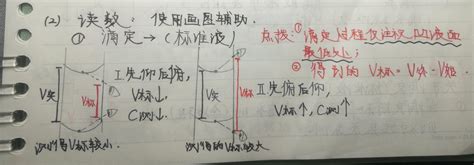 (2) 读数：使用画图辅助.
① 滴定→(标准液)
点拨：① 滴定过程仅注视凹液面
最低处；
② 得到的 V标 = V终 - V始
V实
V标
Ⅰ. 先仰后俯,
V标↓,
C测↓.
测得V标较小.
V实
V标
Ⅱ. 先俯后仰,
V标↑, C测↑
测得的V标较大